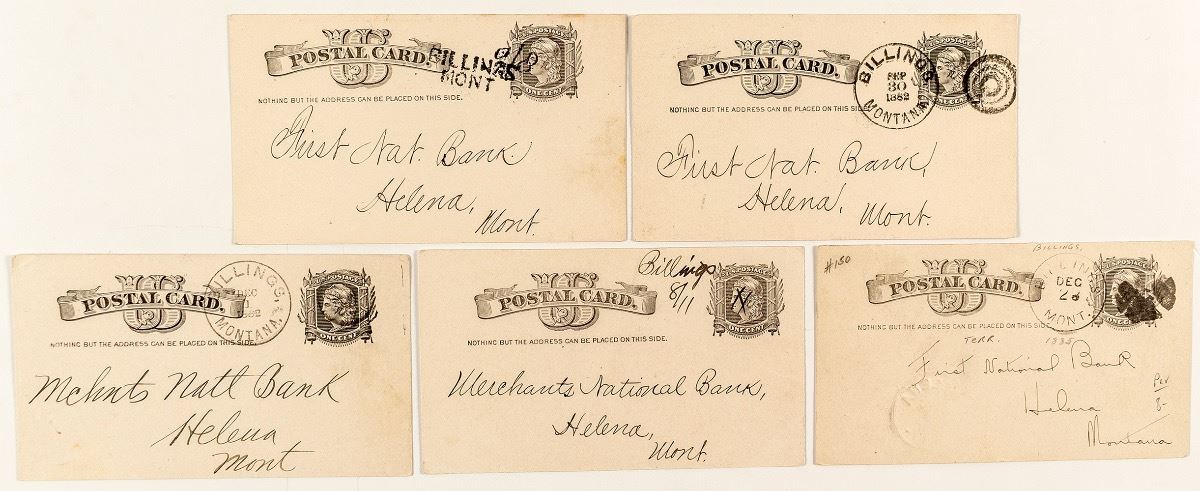 US
POSTAL CARD.
U.S. POSTAGE
ONE CENT
BILLINGS
MONT
NOTHING BUT THE ADDRESS CAN BE PLACED ON THIS SIDE.
First Nat. Bank
Helena,
Mont.
US
POSTAL CARD.
U.S. POSTAGE
ONE CENT
BILLINGS
SEP
30
1882
MONTANA
NOTHING BUT THE ADDRESS CAN BE PLACED ON THIS SIDE.
First Nat. Bank,
Helena,
Mont.
US
POSTAL CARD.
U.S. POSTAGE
ONE CENT
BILLINGS,
DEC
MONTANA.
NOTHING BUT THE ADDRESS CAN BE PLACED ON THIS SIDE.
Mchnts Natl Bank
Helena
Mont
Billings
8/11
US
POSTAL CARD.
U.S. POSTAGE
ONE CENT
X
NOTHING BUT THE ADDRESS CAN BE PLACED ON THIS SIDE.
Merchants National Bank,
Helena,
Mont.
BILLINGS,
#150
US
POSTAL CARD.
ONE CENT
BILLINGS
DEC
MONT.
NOTHING BUT THE ADDRESS CAN BE PLACED ON THIS SIDE.
TERR. 1885
First National Bank
Helena
Montana
8-